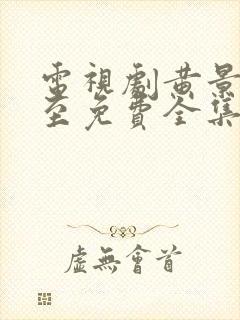 電視劇黃景
至免費全集
虛無會首